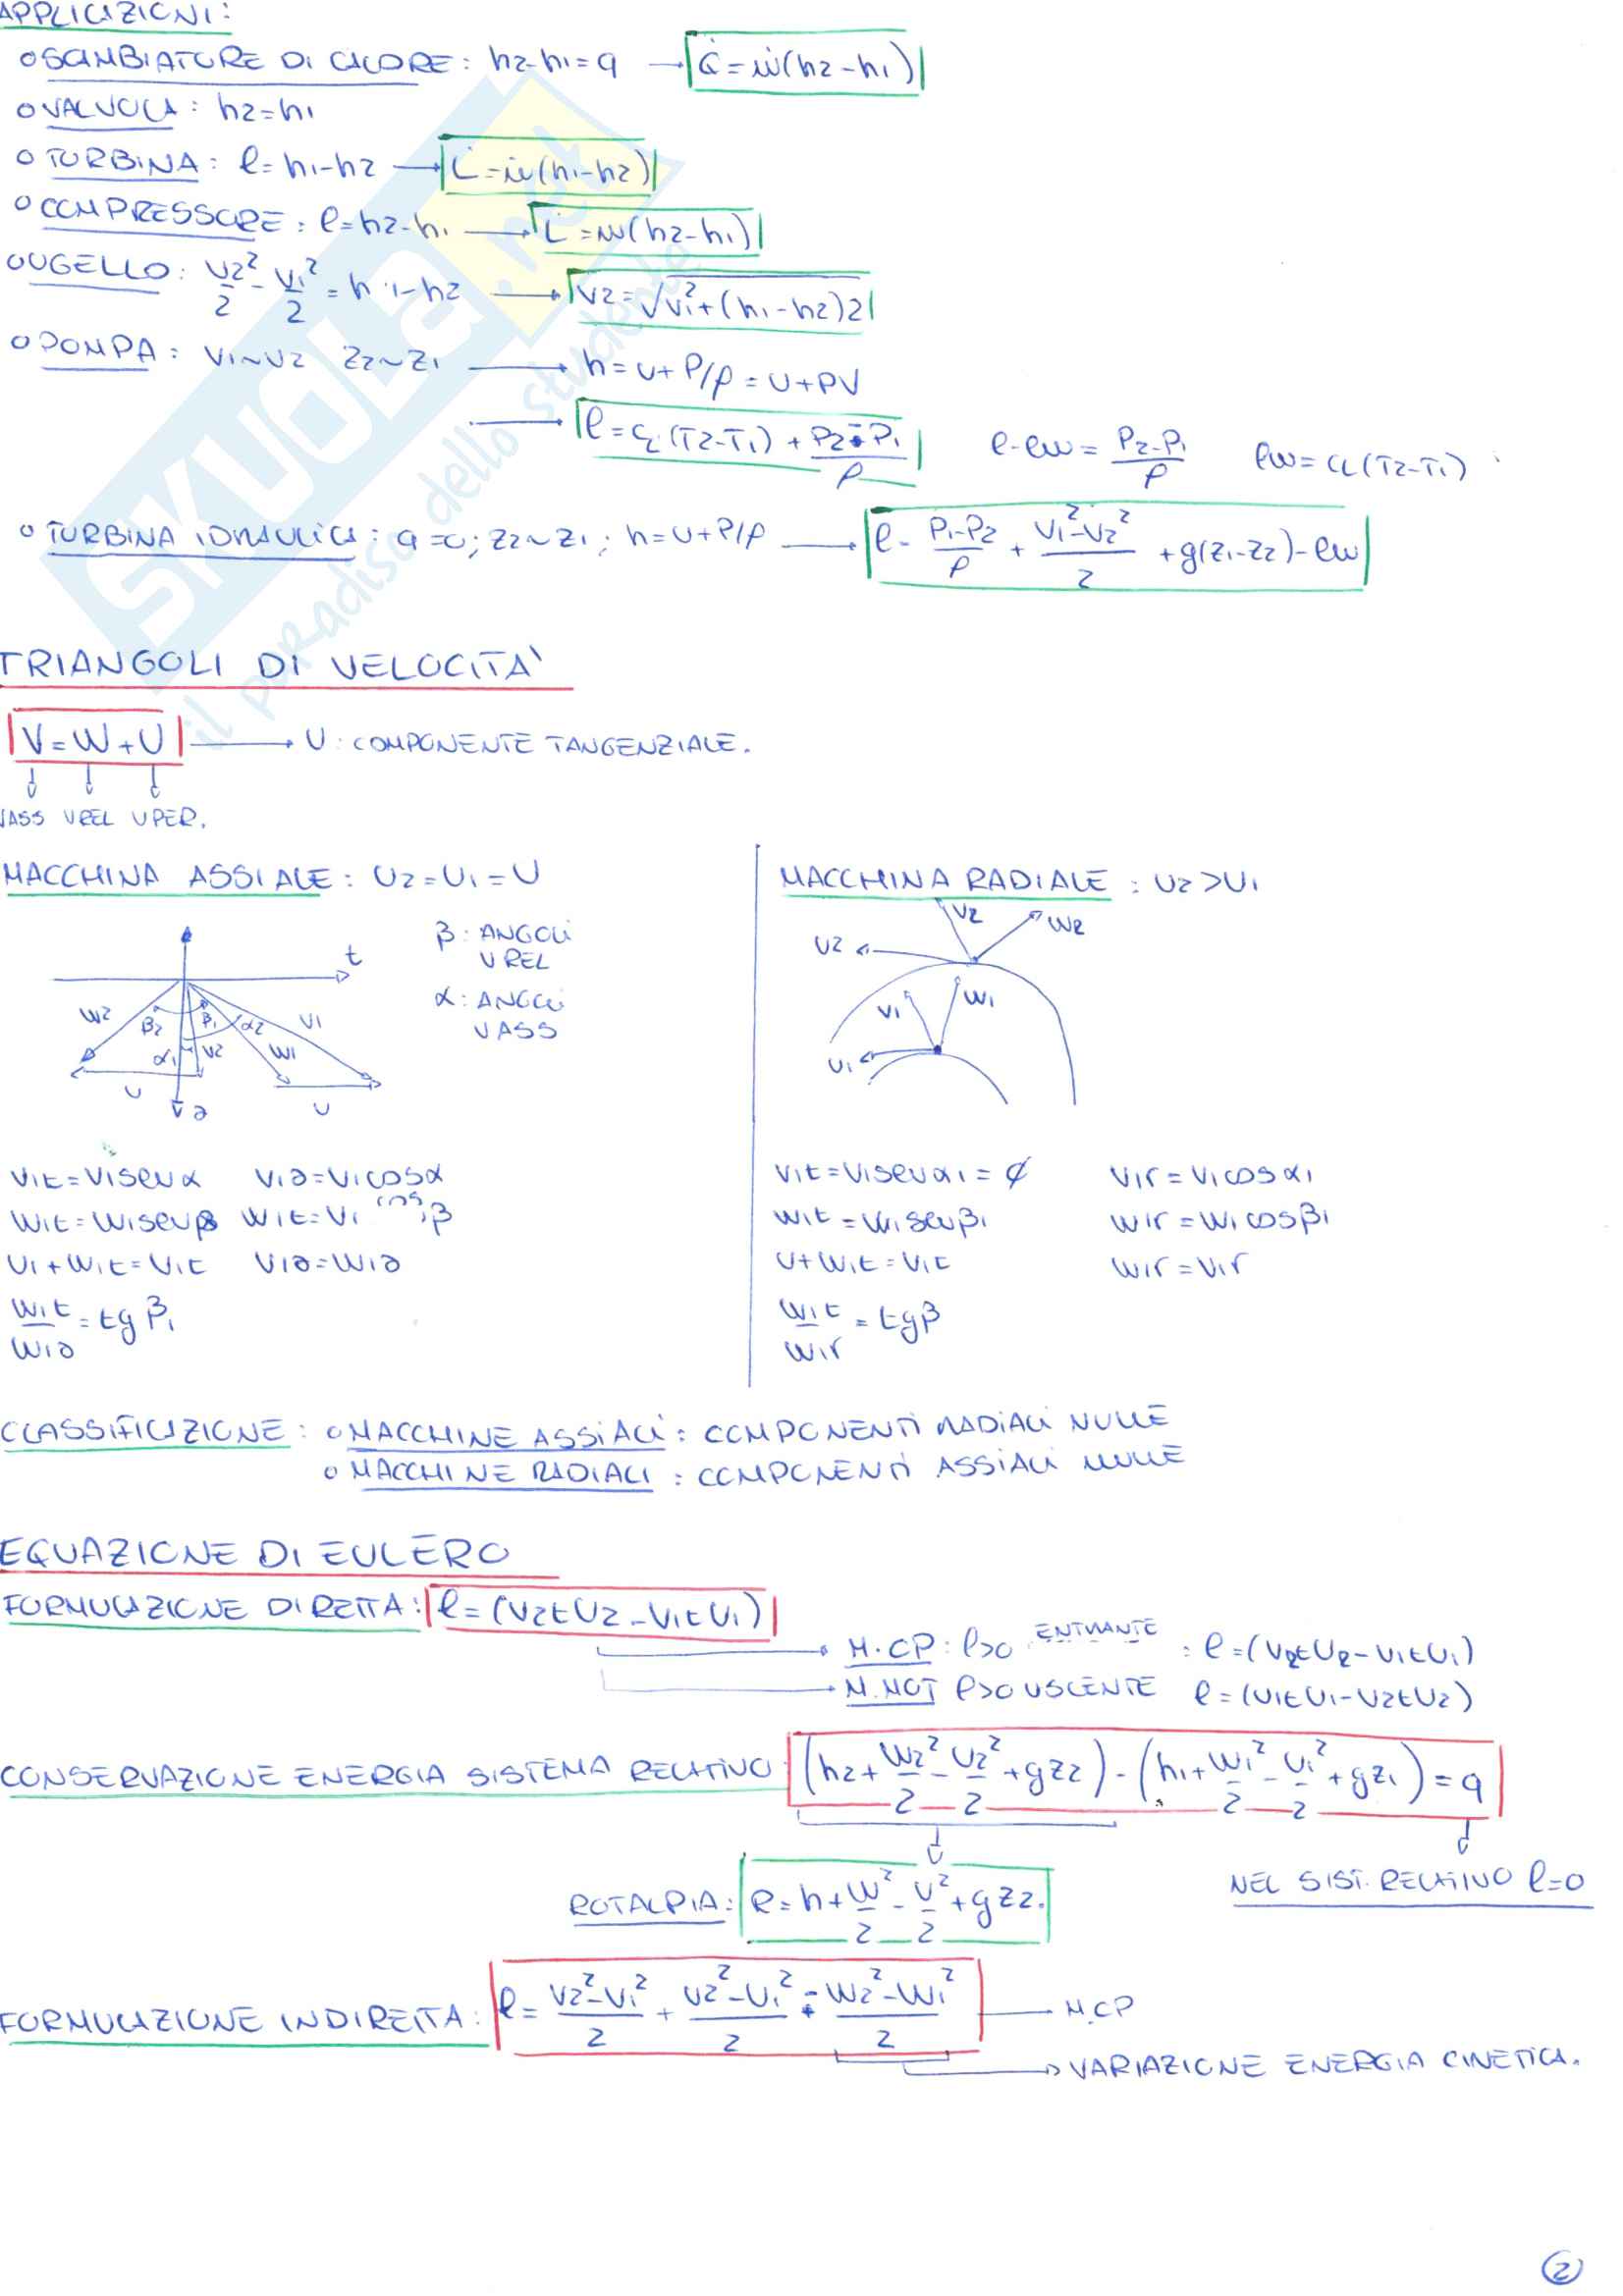 APPLICAZIONI:
o SCAMBIATORE DI CALORE: h2-h1=q → Q̇=ṁ(h2-h1)
o VALVOLA: h2=h1
o TURBINA: l=h1-h2 → L̇=ṁ(h1-h2)
o COMPRESSORE: l=h2-h1 → L̇=ṁ(h2-h1)
o UGELLO: V2²/2 - V1²/2 = h1-h2 → V2=√V1²+(h1-h2)2
o POMPA: V1~V2 Z2~Z1 → h=U+P/ρ=U+PV
→ l=CL(T2-T1)+(P2-P1)/ρ l-lw=(P2-P1)/ρ lw=CL(T2-T1)
o TURBINA IDRAULICA: q=0; Z2~Z1; h=U+P/ρ → l=(P1-P2)/ρ + (V1²-V2²)/2 + g(Z1-Z2)-lw
SKUOLA.net
il paradiso dello studente
TRIANGOLI DI VELOCITA'
V=W+U → U: COMPONENTE TANGENZIALE.
VASS VREL VPER.
MACCHINA ASSIALE: U2=U1=U
t
β: ANGOLI
VREL
α: ANGOLI
VASS
W2 β2 β1 α2 V1
α1 V2 W1
U U
a
V1t=V1senα V1a=V1cosα
W1t=W1senβ W1t=V1 cos β
U1+W1t=V1t V1a=W1a
W1t/W1a=tgβ1
MACCHINA RADIALE: U2>U1
V2 W2
U2
V1 W1
U1
V1t=V1senα1=∅ V1r=V1cosα1
W1t=W1senβ1 W1r=W1cosβ1
U+W1t=V1t W1r=V1r
W1t/W1r=tgβ
CLASSIFICAZIONE: o MACCHINE ASSIALI: COMPONENTI RADIALI NULLE
o MACCHINE RADIALI: COMPONENTI ASSIALI NULLE
EQUAZIONE DI EULERO
FORMULAZIONE DIRETTA: l=(V2tU2-V1tU1)
→ M.OP: l>0 ENTRANTE: l=(V2tU2-V1tU1)
→ M.MOT l>0 USCENTE l=(V1tU1-V2tU2)
CONSERVAZIONE ENERGIA SISTEMA RELATIVO: (h2+W2²/2-U2²/2+gZ2)-(h1+W1²/2-U1²/2+gZ1)=q
ROTALPIA: R=h+W²/2-U²/2+gZ2. NEL SIST. RELATIVO l=0
FORMULAZIONE INDIRETTA: l=(V2²-V1²)/2+(U2²-U1²)/2-(W2²-W1²)/2 — M.OP
→ VARIAZIONE ENERGIA CINETICA.
2